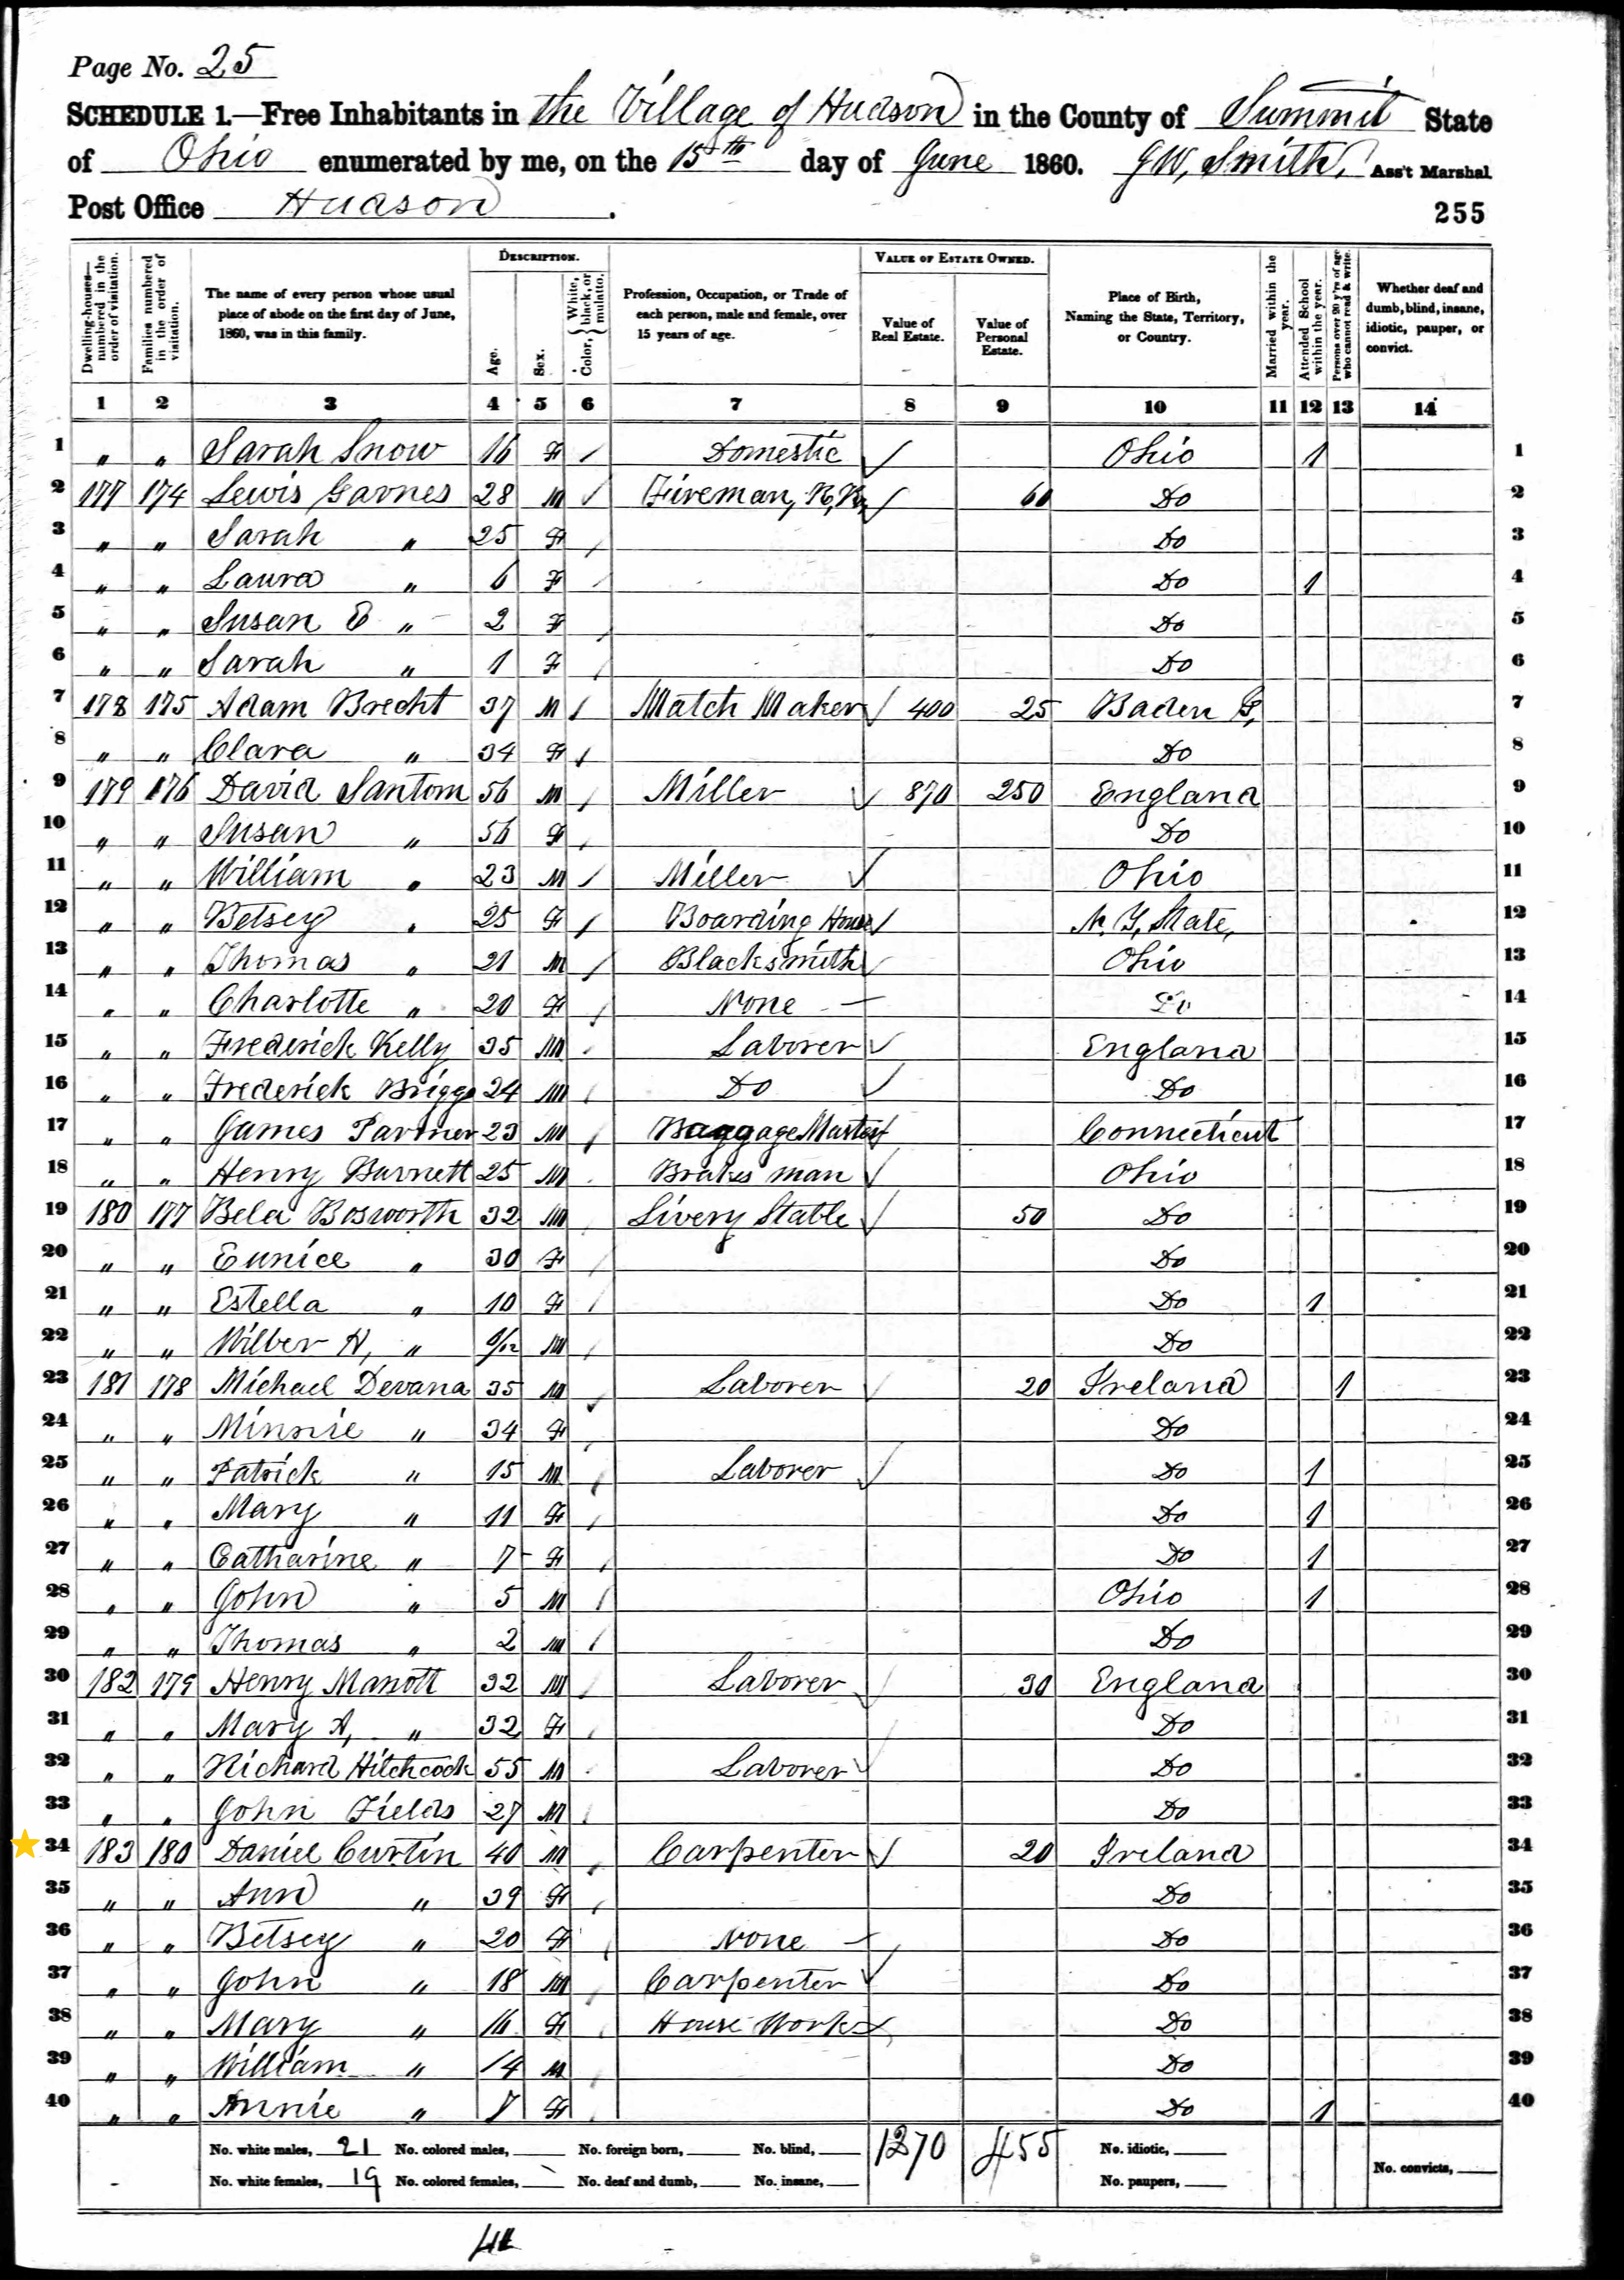 Page No. 25
SCHEDULE 1.—Free Inhabitants in the Village of Hudson in the County of Summit State
of Ohio enumerated by me, on the 15th day of June 1860. G W, Smith, Ass't Marshal
Post Office Hudson . 255
Dwelling-houses—numbered in the order of visitation.
Families numbered in the order of visitation.
The name of every person whose usual place of abode on the first day of June, 1860, was in this family.
DESCRIPTION.
Age.
Sex.
Color, { White, black, or mulatto.
Profession, Occupation, or Trade of each person, male and female, over 15 years of age.
VALUE OF ESTATE OWNED.
Value of Real Estate.
Value of Personal Estate.
Place of Birth, Naming the State, Territory, or Country.
Married within the year.
Attended School within the year.
Persons over 20 y'rs of age who cannot read & write.
Whether deaf and dumb, blind, insane, idiotic, pauper, or convict.
1 2 3 4 5 6 7 8 9 10 11 12 13 14
1 " " Sarah Snow 16 F Domestic Ohio 1 1
2 177 174 Lewis Garnes 28 M Fireman, R, R, 60 Do 2
3 " " Sarah " 25 F Do 3
4 " " Laura " 6 F Do 1 4
5 " " Susan E " 2 F Do 5
6 " " Sarah " 1 F Do 6
7 178 175 Adam Brecht 37 M Match Maker 400 25 Baden G, 7
8 " " Clara " 34 F Do 8
9 179 176 David Santom 56 M Miller 870 250 England 9
10 " " Susan " 56 F Do 10
11 " " William " 23 M Miller Ohio 11
12 " " Betsey " 25 F Boarding House N. Y, State, 12
13 " " Thomas " 21 M Blacksmith Ohio 13
14 " " Charlotte " 20 F None Do 14
15 " " Frederick Kelly 35 M Laborer England 15
16 " " Frederick Briggs 24 M Do Do 16
17 " " James Partner 23 M Baggage Master Connecticut 17
18 " " Henry Barnett 25 M Brakes man Ohio 18
19 180 177 Bela Bosworth 32 M Livery Stable 50 Do 19
20 " " Eunice " 30 F Do 20
21 " " Estella " 10 F Do 1 21
22 " " Wilber H, " 9/12 M Do 22
23 181 178 Michael Devana 35 M Laborer 20 Ireland 1 23
24 " " Minnie " 34 F Do 24
25 " " Patrick " 15 M Laborer Do 1 25
26 " " Mary " 11 F Do 1 26
27 " " Catharine " 7 F Do 1 27
28 " " John " 5 M Ohio 1 28
29 " " Thomas " 2 M Do 29
30 182 179 Henry Manott 32 M Laborer 30 England 30
31 " " Mary A, " 32 F Do 31
32 " " Richard Hitchcock 55 M Laborer Do 32
33 " " John Fields 27 M Do 33
34 183 180 Daniel Curtin 40 M Carpenter 20 Ireland 34
35 " " Ann " 39 F Do 35
36 " " Betsey " 20 F None Do 36
37 " " John " 18 M Carpenter Do 37
38 " " Mary " 16 F House Work Do 38
39 " " William " 14 M Do 39
40 " " Annie " 7 F Do 1 40
No. white males, 21 No. colored males, No. foreign born, No. blind, 1270 455 No. idiotic,
No. white females, 19 No. colored females, No. deaf and dumb, No. insane, No. paupers, No. convicts,